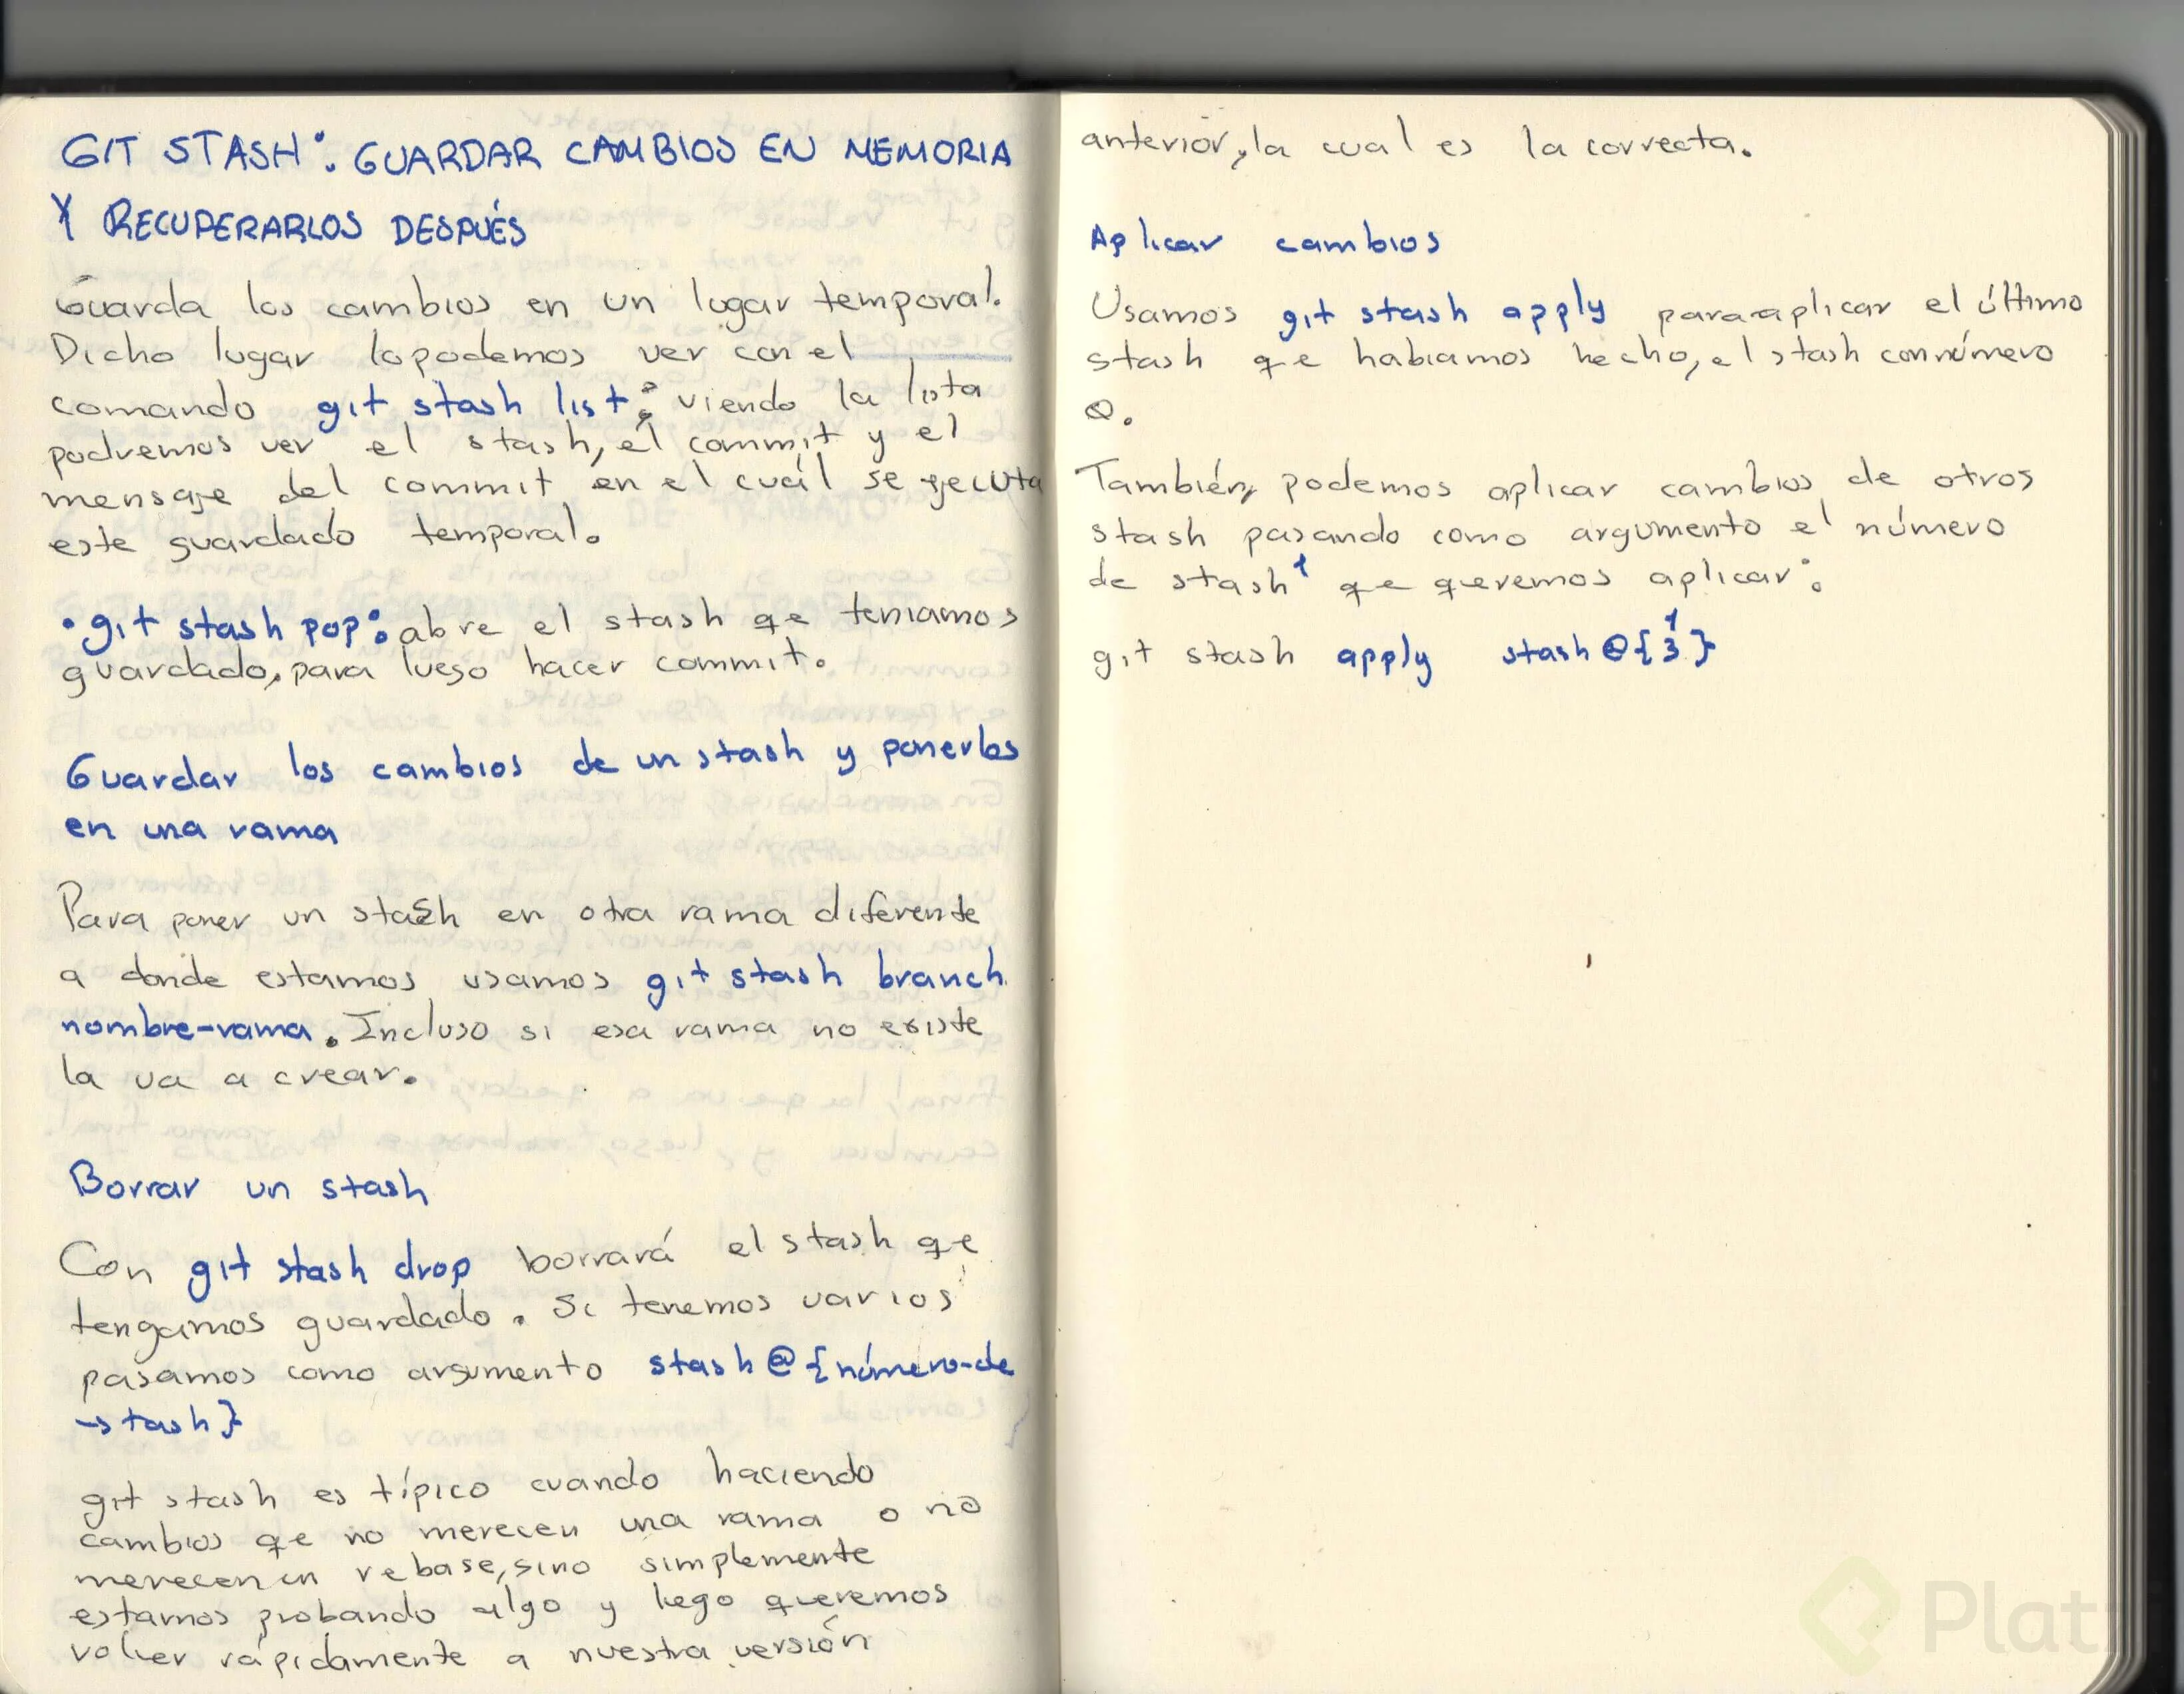 GIT STASH: GUARDAR CAMBIOS EN MEMORIA
Y RECUPERARLOS DESPUÉS
Guarda los cambios en un lugar temporal.
Dicho lugar lo podemos ver con el
comando git stash list: viendo la lista
podremos ver el stash, el commit y el
mensaje del commit en el cuál se ejecuta
este guardado temporal.
• git stash pop: abre el stash qe teniamos
guardado, para luego hacer commit.
Guardar los cambios de un stash y ponerlos
en una rama
Para poner un stash en otra rama diferente
a donde estamos usamos git stash branch
nombre-rama. Incluso si esa rama no existe
la va a crear.
Borrar un stash
Con git stash drop borrará el stash qe
tengamos guardado. Si tenemos varios
pasamos como argumento stash@{número-de
-stash}
git stash es típico cuando haciendo
cambios qe no merecen una rama o no
merecen un rebase, sino simplemente
estamos probando algo y lego queremos
volver rápidamente a nuestra versión
anterior, la cual es la correcta.
Aplicar cambios
Usamos git stash apply para aplicar el último
stash qe habiamos hecho, el stash con número
0.
También, podemos aplicar cambios de otros
stash pasando como argumento el número
de stash qe queremos aplicar:
git stash apply stash@{3}
Platz